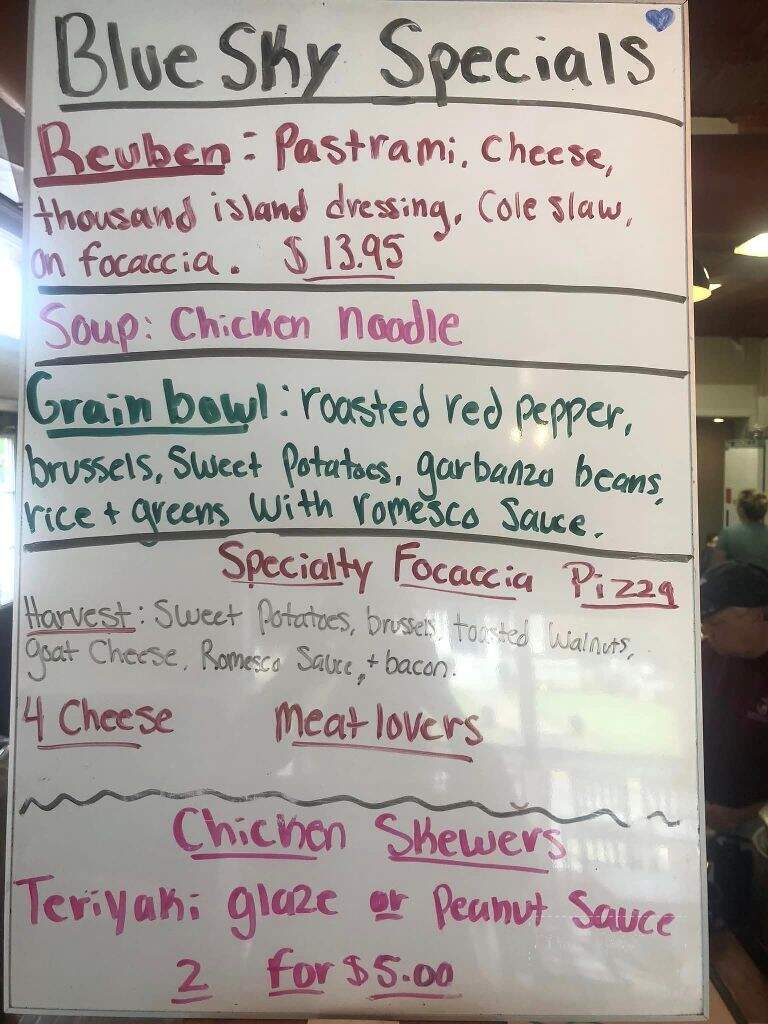 Blue Sky Specials
Reuben: Pastrami, cheese,
thousand island dressing, Cole slaw,
on focaccia. $13.95
Soup: Chicken noodle
Grain bowl: roasted red pepper,
brussels, Sweet Potatoes, garbanzo beans,
rice + greens with romesco sauce.
Specialty Focaccia Pizza
Harvest: Sweet Potatoes, brussels, toasted walnuts,
goat Cheese, Romesco Sauce, + bacon.
4 Cheese meat lovers
Chicken Skewers
Teriyaki glaze or Peanut Sauce
2 for $5.00